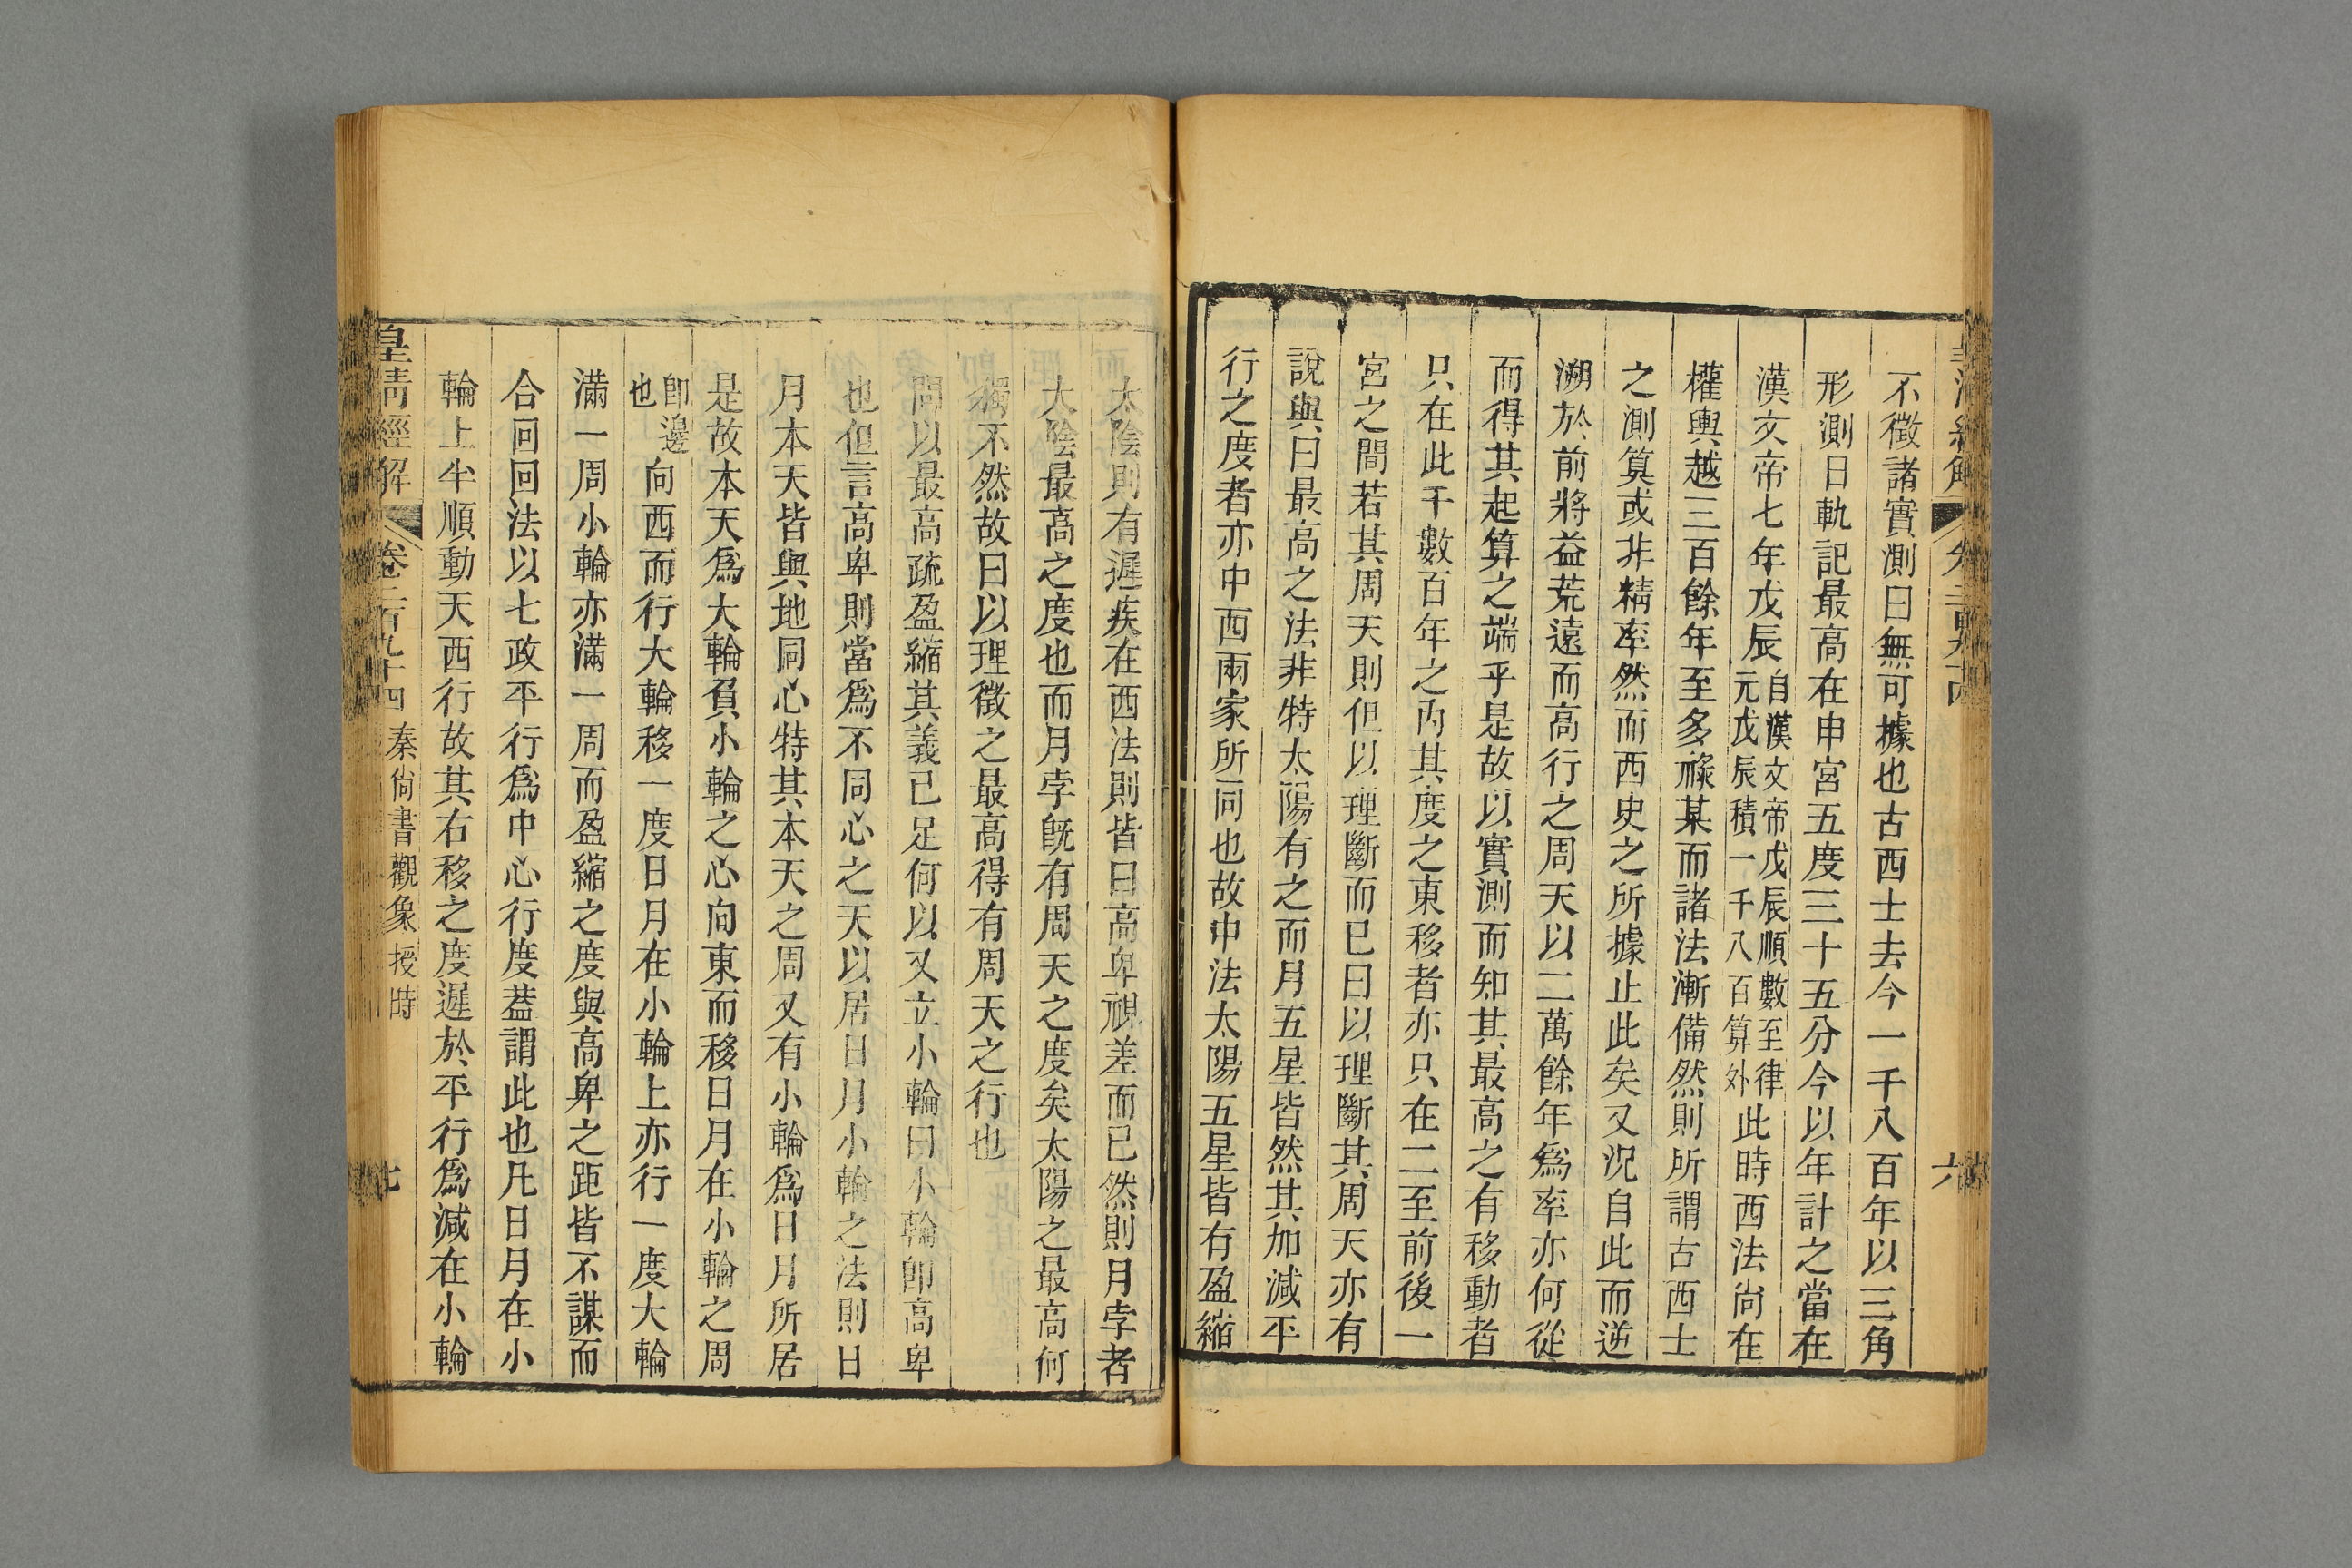 不徵諸實測曰無可據也古西士去今一千八百年以三角
形測日軌記最高在申宮五度三十五分今以年計之當在
漢文帝七年戊辰自漢文帝戊辰順數至律元戊辰積一千八百算外此時西法尙在
權輿越三百餘年至多祿某而諸法漸備然則所謂古西士
之測算或非精率然而西史之所據止此矣又況自此而逆
溯於前將益荒遠而高行之周天以二萬餘年爲率亦何從
而得其起算之端乎是故以實測而知其最高之有移動者
只在此千數百年之內其度之東移者亦只在二至前後一
宮之間若其周天則但以理斷而已曰以理斷其周天亦有
說與曰最高之法非特太陽有之而月五星皆然其加減平
行之度者亦中西兩家所同也故中法太陽五星皆有盈縮
太陰則有遲疾在西法則皆曰高卑視差而已然則月孛者
太陰最高之度也而月孛旣有周天之度矣太陽之最高何
獨不然故曰以理徵之最高得有周天之行也
問以最高疏盈縮其義已足何以又立小輪曰小輪卽高卑
也但言高卑則當爲不同心之天以居日月小輪之法則日
月本天皆與地同心特其本天之周又有小輪爲日月所居
是故本天爲大輪負小輪之心向東而移日月在小輪之周
卽邊也向西而行大輪移一度日月在小輪上亦行一度大輪
滿一周小輪亦滿一周而盈縮之度與高卑之距皆不謀而
合回回法以七政平行爲中心行度葢謂此也凡日月在小
輪上半順動天西行故其右移之度遲於平行爲減在小輪
皇淸經解 卷二百九十四 秦尙書觀象授時 七